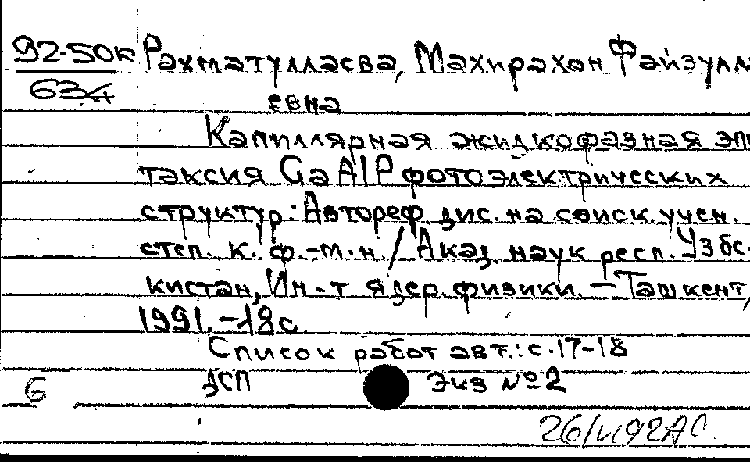 92-50к Рахматуллаева, Махирахон Файзулла
634 евна
Капиллярная жидкофазная эпи
таксия GaAlP фотоэлектрических
структур: Автореф. дис. на соиск. учен.
степ. к. ф.-м. н. / Акад. наук респ. Узбе-
кистан, Ин-т ядер. физики. — Ташкент,
1991. - 18 с.
Список работ авт.: с. 17-18
ДСП Экз № 2
б